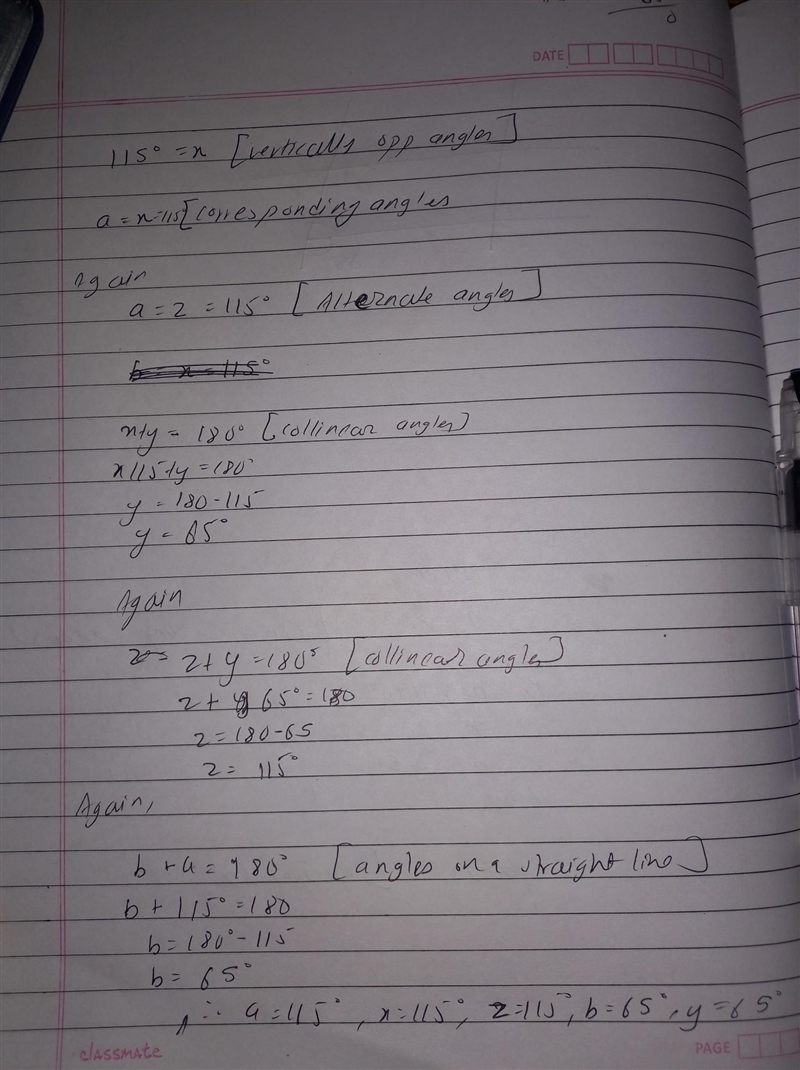 DATE
115° = x [vertically opp angles]
a = x = 115 [corresponding angles
Again
a = z = 115° [Alternate angles]
b = x = 115°
x+y = 180° [collinear angles]
x 115+y = 180°
y = 180 - 115
y = 65°
Again
z = z + y = 180° [collinear angles]
z + y 65° = 180
z = 180 - 65
z = 115°
Again,
b + a = 180° [angles on a straight line]
b + 115° = 180
b = 180° - 115
b = 65°
∴ a = 115°, x = 115°, z = 115°, b = 65°, y = 65°
classmate
PAGE